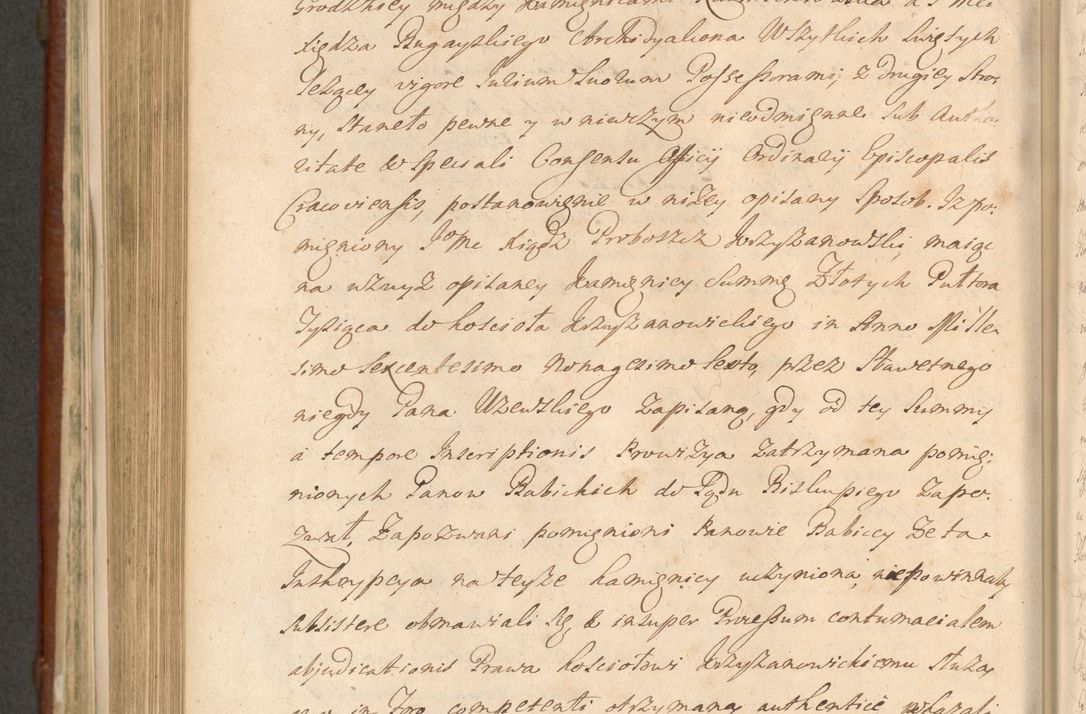 Grodzkiey między Kamienicami
Xiędza Bugayskiego Archidyakona Wszytkich Swiętych
leżącey vigore Iurium suorum Possessorami, z drugiey stro:
ny, stanęło pewne y w niwczym nieodmięnne sub Autho
ritate & speciali Consensu Officij Ordinarij Episcopalis
Cracoviensis, postanowięnie w niżey opisany sposob. Iż po:
mięniony Jmc Xiądz Proboszcz Krzyżanowski, maiąc
na wzwyż opisaney Kamięnicy Summę Złotych Pułtora
Tysiąca do kościoła Krzyżanowickiego in Anno Mille
simo Sexcentesimo Nonagesimo Sexto, przez Sławetnego
niegdy Pana Uzewskiego zapisaną, gdy od tey Summy
à tempore Inscriptionis Prowizya zatrzymana pomię:
nionych Panow Babickich do Sądu Biskupiego zapo:
zwał, Zapozwani pomięnioni Panowie Babiccy że ta
Inskrypcya na teyże kamięnicy uczyniona, niepowinna
subsistere obmawiali się, & insuper Processum contumacialem
abjudicationis Prawa kościołowi Krzyżanowickiemu służą
in Foro competenti otrzymany authenticè pokazali